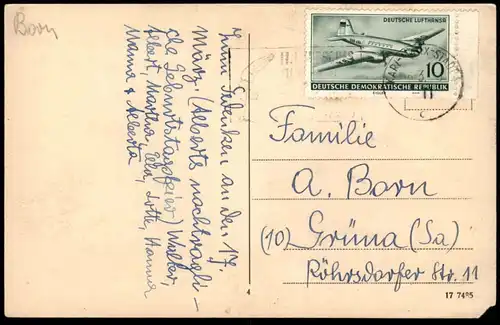 Born
Zum Gedenken an den 17.
März. (Alberts nachträgli-
che Geburtstagsfeier) Walter,
Albert, Martha, Lotte, Hanna
Mama & Alberta
DEUTSCHE LUFTHANSA
10
DEUTSCHE DEMOKRATISCHE REPUBLIK
Familie
A. Born
(10) Grüna (Sa)
Röhrsdorfer Str. 11
4
17 7485